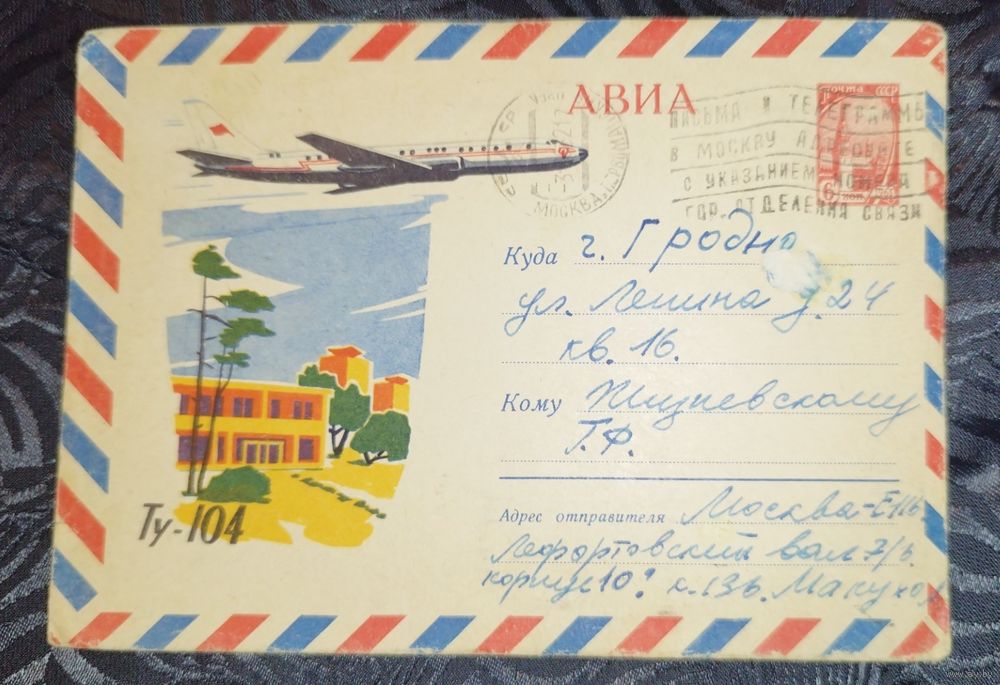 АВИА
ПОЧТА СССР
6 коп.
МОСКВА
ПИСЬМА И ТЕЛЕГРАММЫ
В МОСКВУ АДРЕСУЙТЕ
С УКАЗАНИЕМ НОМЕРА
ГОР. ОТДЕЛЕНИЯ СВЯЗИ
Куда г. Гродно
ул. Ленина д. 24
кв. 16.
Кому Жизневскому
Г.Ф.
Адрес отправителя Москва-Е116
Лефортовский вал 7/6
корпус 10 к. 136.
Ту-104